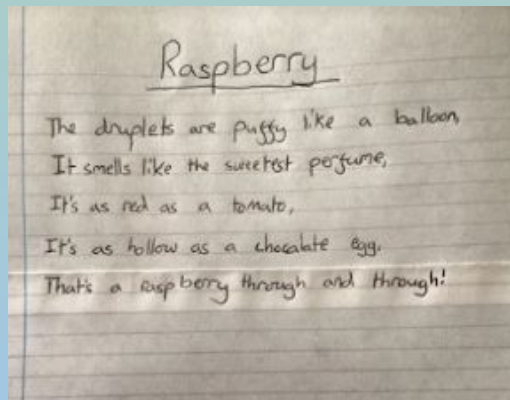 Raspberry
The druplets are puffy like a balloon,
It smells like the sweetest perfume,
It's as red as a tomato,
It's as hollow as a chocolate egg.
That's a raspberry through and through!